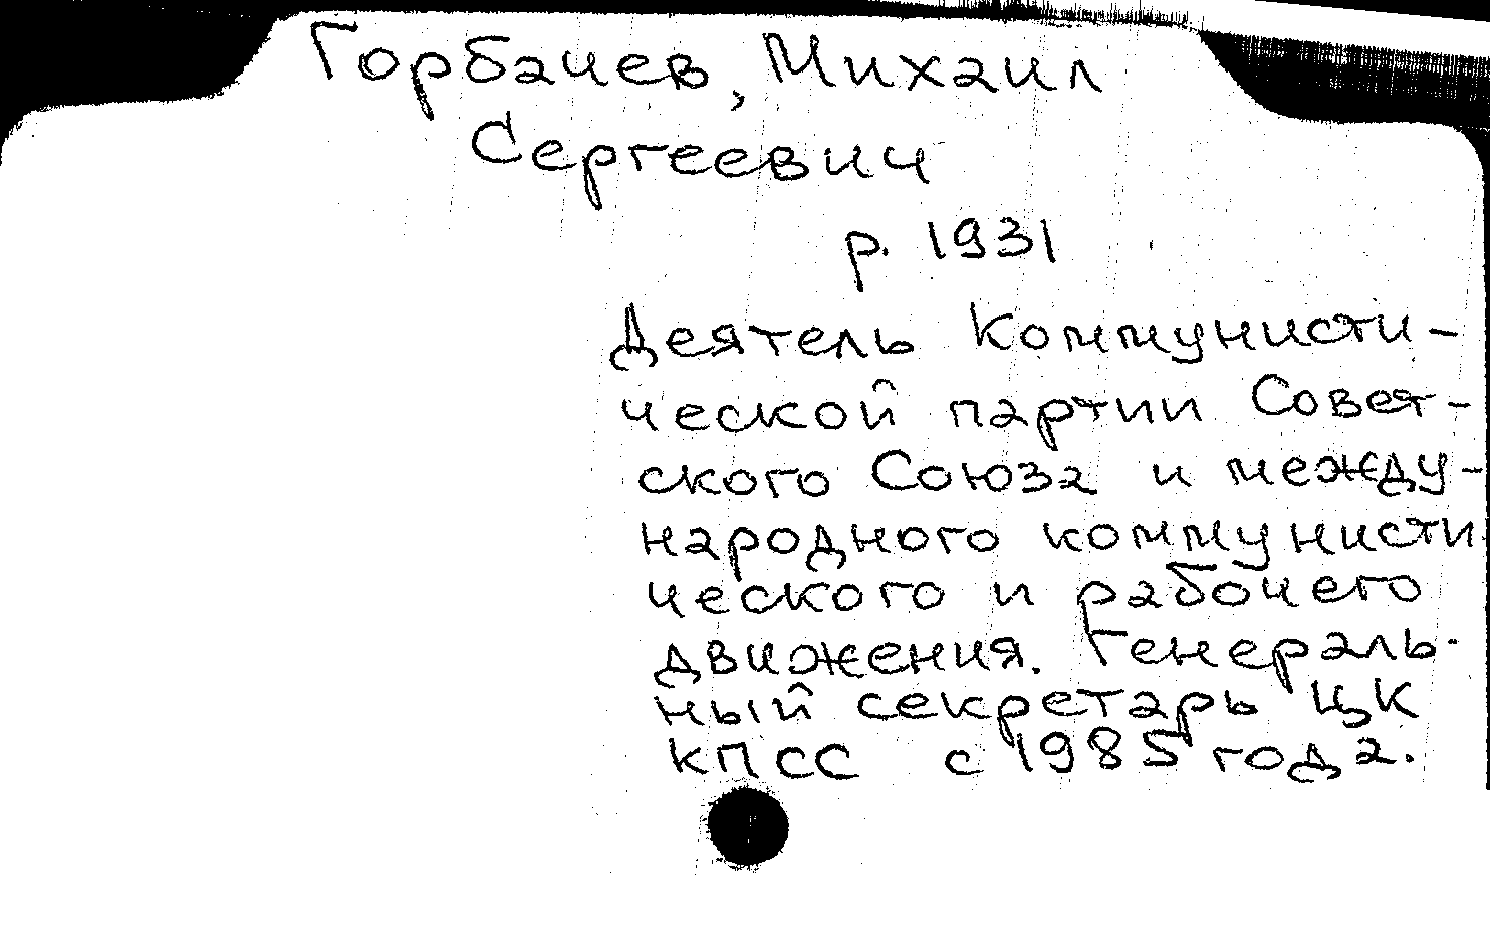 Горбачев, Михаил
Сергеевич
р. 1931
Деятель Коммунисти-
ческой партии Совет-
ского Союза и между-
народного коммунисти
ческого и рабочего
движения. Генераль-
ный секретарь ЦК
КПСС с 1985 года.